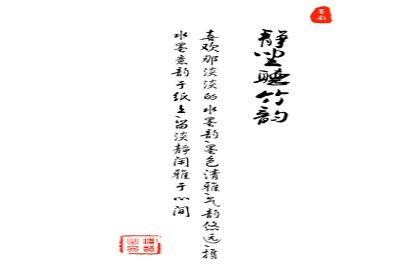 静坐聽竹韵
喜欢那淡淡的水墨韵、墨色清雅、气韵悠远、携
水墨意韵于纸上、留淡静闲雅于心间